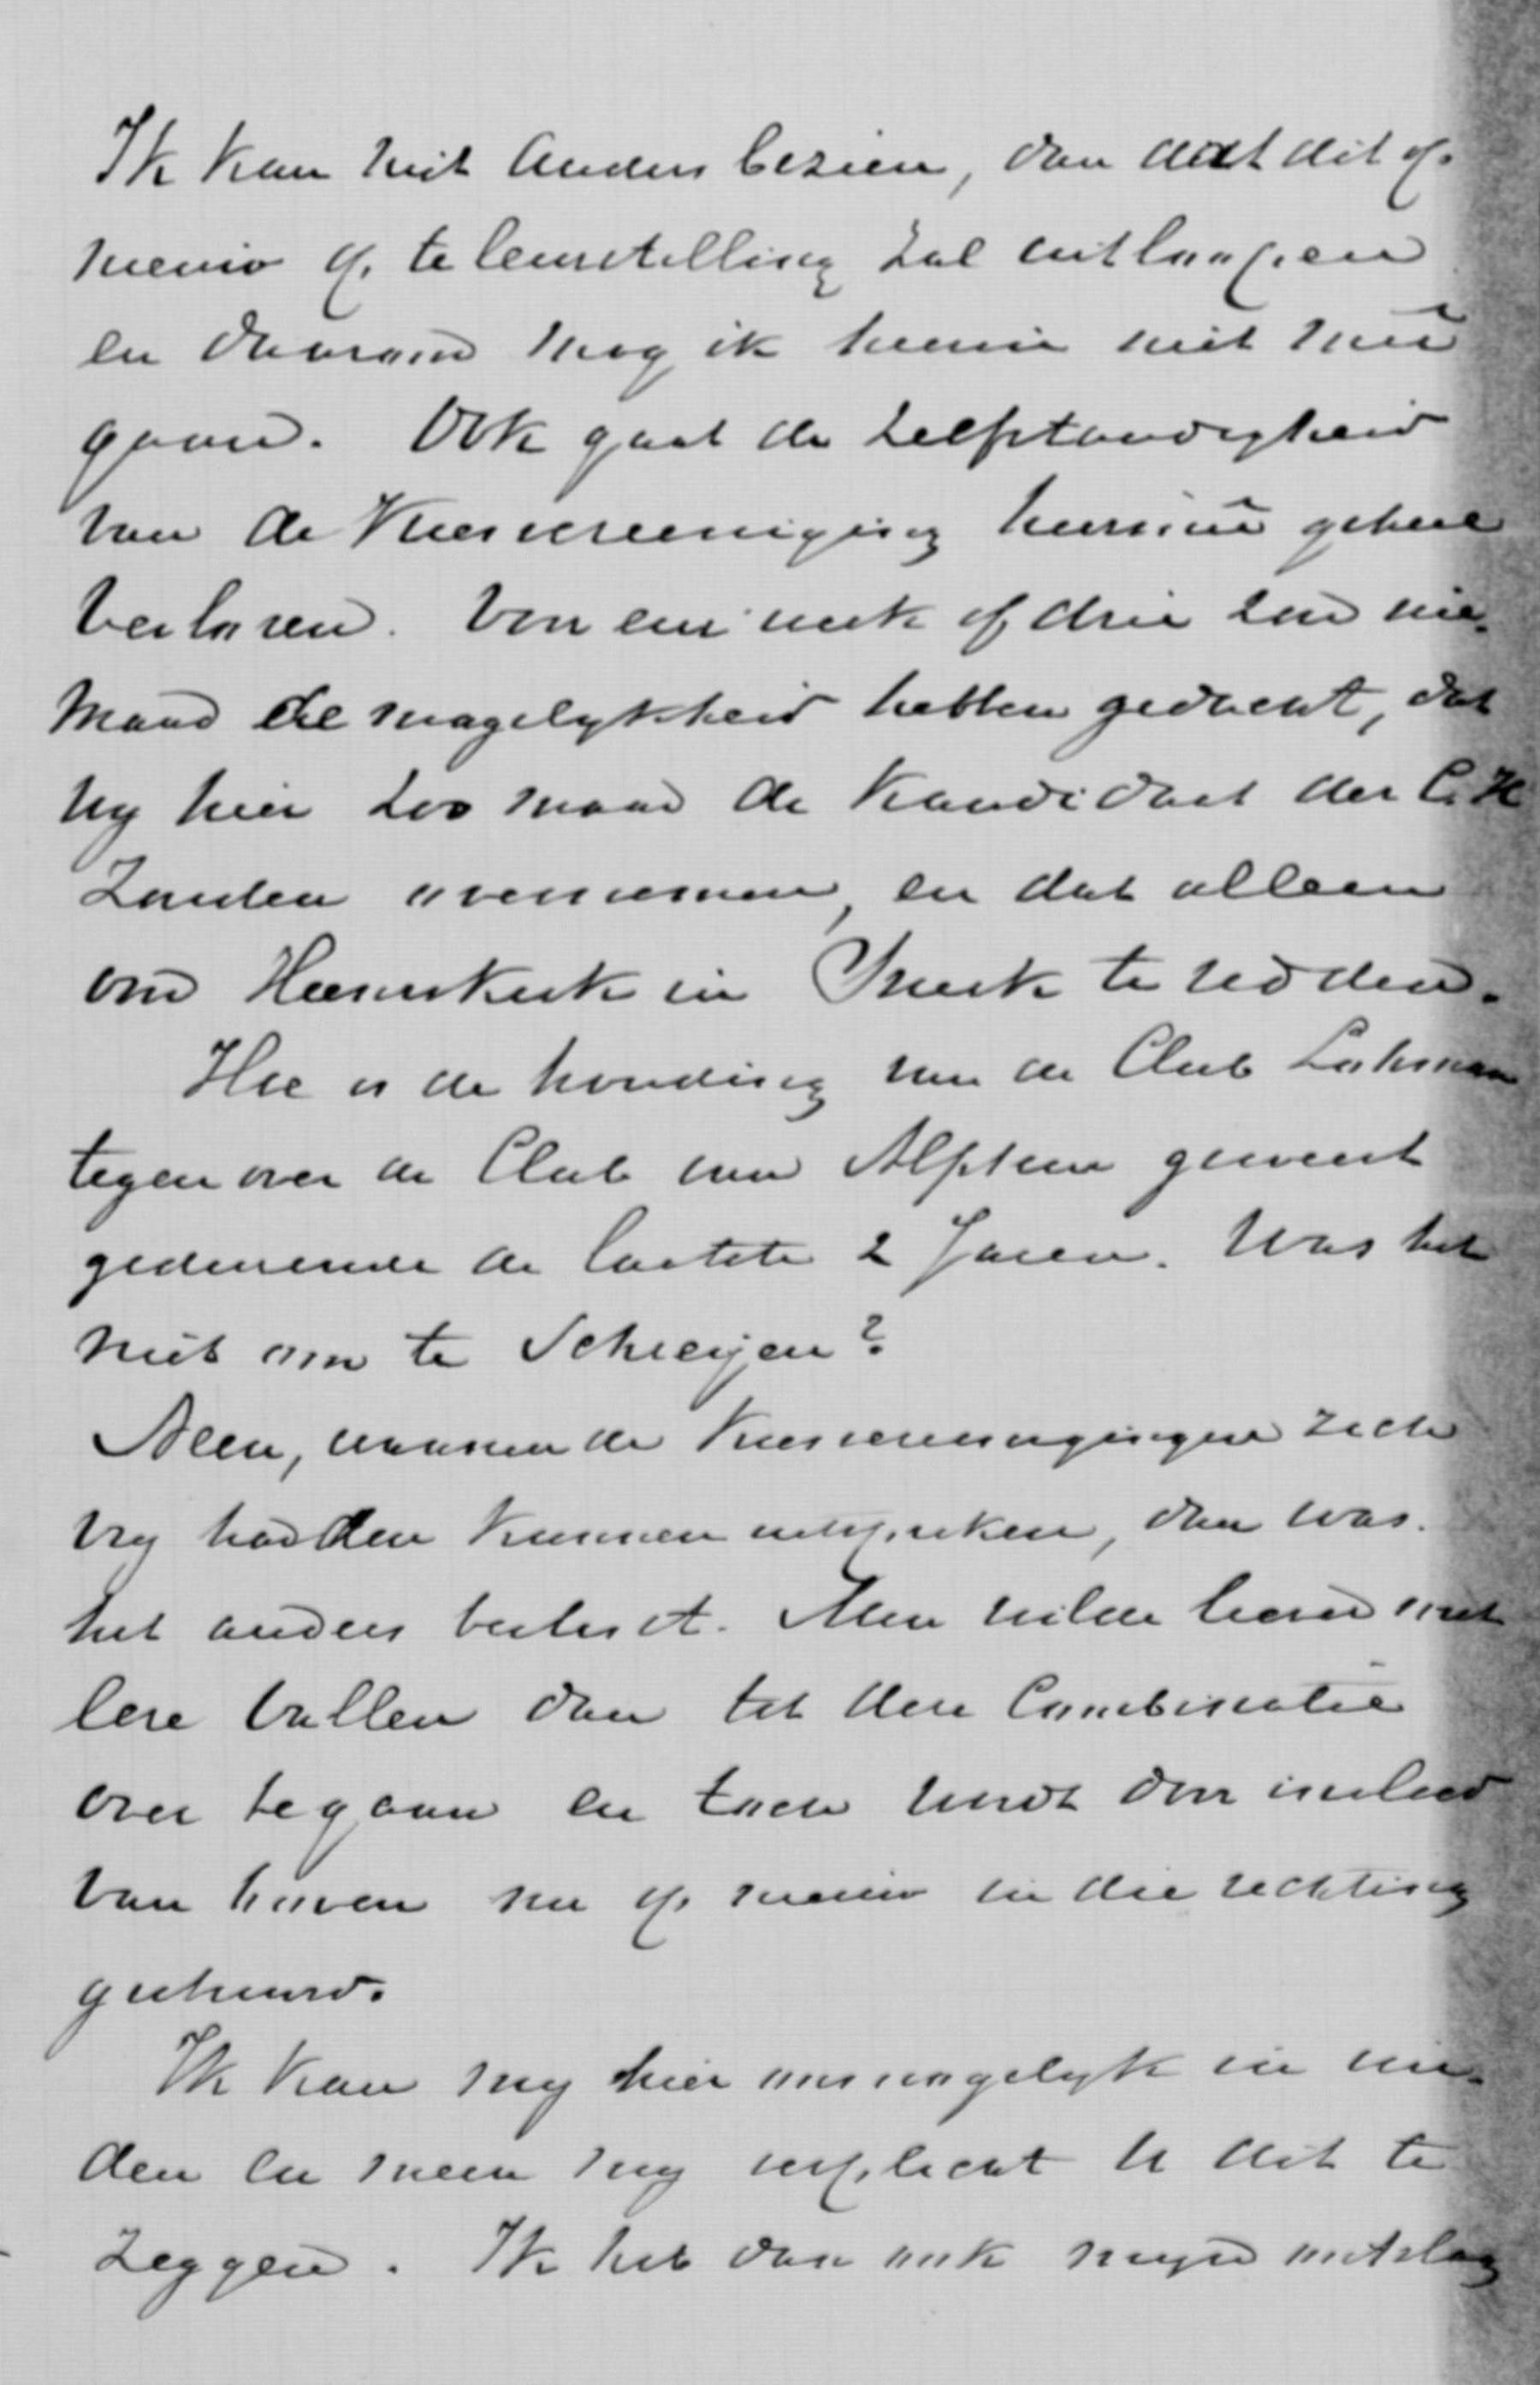 Ik kan niet anders bezien, dan dat dit op
nieuw op te leurstelling zal uitloopen
en daarom mag ik hierin niet mee
gaan. Ook gaat de zelfstandigheid
van de Kiesvereeniging hiermee geheel
verloren. Voor een week of drie zou nie-
mand de mogelykheid hebben gedacht, dat
wy hier zoo maar de Kandidaat der C.H
zouden overnemen, en dat alleen
om Heemskerk in Sneek te redden.
Hoe is de houding van de Club Lohman
tegenover de Club van Alphen geweest
gedurende de laatste 2 Jaren. Was het
niet om te Schreijen?
Neen, waneer de Kiesvereenigingen zich
vry hadden kunnen uitspreken, dan was
het anders beslist. Men wilde liever met
eere vallen dan tot deze Combinatie
over te gaan en toch wordt door invloed
van boven nu op nieuw in die richting
gestuurd.
Ik kan my hier onmogelyk in vin-
den en meen my verplicht U dit te
zeggen. Ik heb dan ook myn ontslag